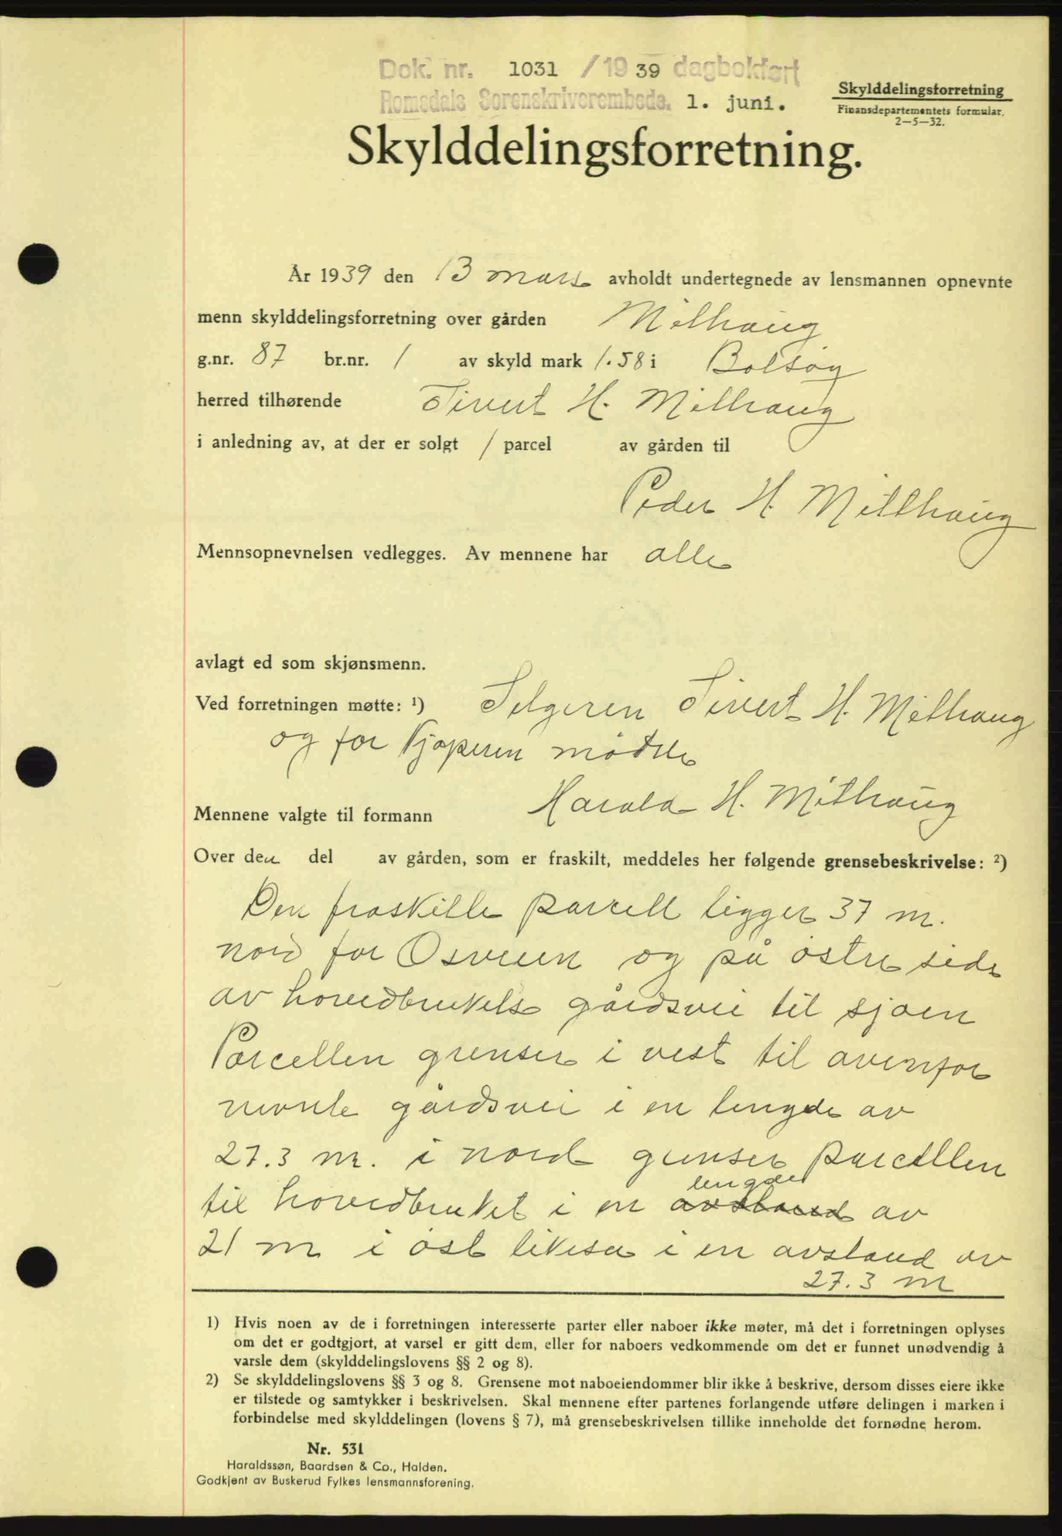 Dok. nr. 1031 / 1939 dagbokført
Romsdals Sorenskriverembede. 1. juni.
Skylddelingsforretning
Finansdepartementets formular.
2—5—32.
Skylddelingsforretning.
År 1939 den 13 mars avholdt undertegnede av lensmannen opnevnte
menn skylddelingsforretning over gården Mělhaug
g.nr. 87 br.nr. 1 av skyld mark 1.58 i Bolsøy
herred tilhørende Sivert H. Mělhaug
i anledning av, at der er solgt 1 parcel av gården til
Peder H. Mělthaug
Mennsopnevnelsen vedlegges. Av mennene har alle
avlagt ed som skjønsmenn.
Ved forretningen møtte: ¹) Selgeren Sivert H. Mělhaug
og for kjøperen møtte
Mennene valgte til formann Harald H. Mělhaug
Over den del av gården, som er fraskilt, meddeles her følgende grensebeskrivelse: ²)
Den fraskilte parcell ligger 37 m.
nord for Osveien og på østre side
av hovedbrukets gårdsvei til sjøen
Parcellen grenser i vest til ovenfor
nevnte gårdsvei i en lengde av
27.3 m. i nord grenser parcellen
til hovedbruket i en avstand lengde av
21 m i øst likeså i en avstand av
27.3 m
1) Hvis noen av de i forretningen interesserte parter eller naboer ikke møter, må det i forretningen oplyses
om det er godtgjort, at varsel er gitt dem, eller for naboers vedkommende om det er funnet unødvendig å
varsle dem (skylddelingslovens §§ 2 og 8).
2) Se skylddelingslovens §§ 3 og 8. Grensene mot naboeiendommer blir ikke å beskrive, dersom disses eiere ikke
er tilstede og samtykker i beskrivelsen. Skal mennene efter partenes forlangende utføre delingen i marken i
forbindelse med skylddelingen (lovens § 7), må grensebeskrivelsen tillike inneholde det fornødne herom.
Nr. 531
Haraldssøn, Baardsen & Co., Halden.
Godkjent av Buskerud Fylkes lensmannsforening.